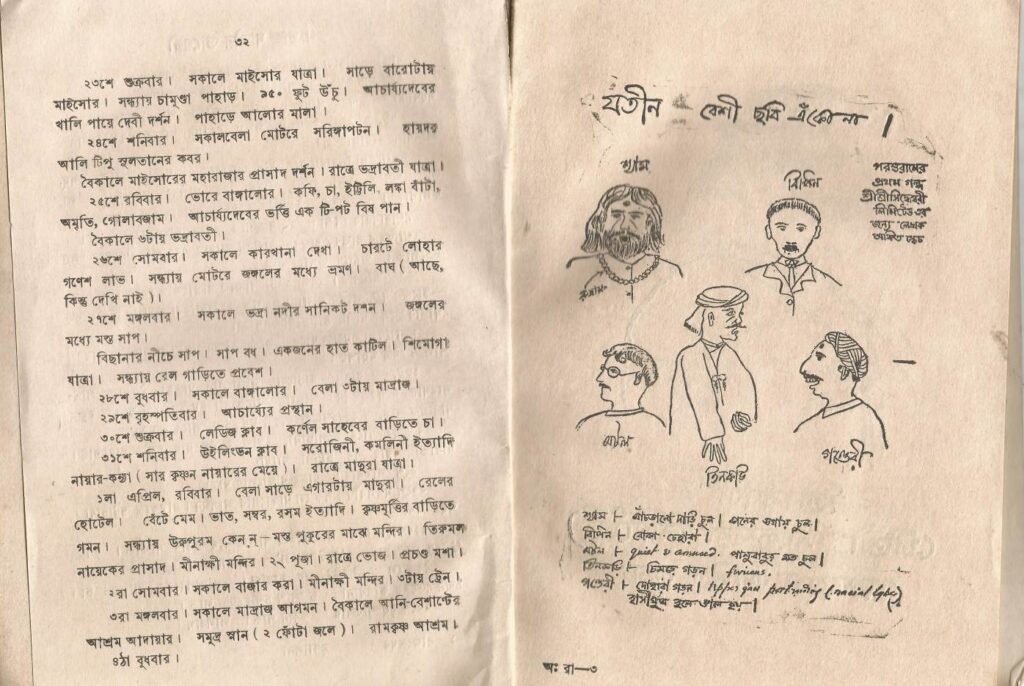 ৩২
২৩শে শুক্রবার। সকালে মাইসোর যাত্রা। সাড়ে বারোটায়
মাইসোর। সন্ধ্যায় চামুণ্ডা পাহাড়। ৯৫০ ফুট উঁচু। আচার্য্যদেবের
খালি পায়ে দেবী দর্শন। পাহাড়ে আলোর মালা।
২৪শে শনিবার। সকালবেলা মোটরে সরিঙ্গাপটন। হায়দর
আলি টিপু সুলতানের কবর।
বৈকালে মাইসোরের মহারাজার প্রাসাদ দর্শন। রাত্রে ভদ্রাবতী যাত্রা।
২৫শে রবিবার। ভোরে বাঙ্গালোর। কফি, চা, ইটিলি, লঙ্কা বাঁটা,
অমৃতি, গোলাবজাম। আচার্য্যদেবের ভর্ত্তি এক টি-পট বিষ পান।
বৈকালে ৬টায় ভদ্রাবতী।
২৬শে সোমবার। সকালে কারখানা দেখা। চারটে লোহার
গণেশ লাভ। সন্ধ্যায় মোটরে জঙ্গলের মধ্যে ভ্রমণ। বাঘ (আছে,
কিন্তু দেখি নাই)।
২৭শে মঙ্গলবার। সকালে ভদ্রা নদীর সানিকট দর্শন। জঙ্গলের
মধ্যে মস্ত সাপ।
বিছানার নীচে সাপ। সাপ বধ। একজনের হাত কাটিল। শিমোগা
যাত্রা। সন্ধ্যায় রেল গাড়িতে প্রবেশ।
২৮শে বুধবার। সকালে বাঙ্গালোর। বেলা ৩টায় মাদ্রাজ।
২৯শে বৃহস্পতিবার। আচার্য্যের প্রস্থান।
৩০শে শুক্রবার। লেডিজ ক্লাব। কর্ণেল সাহেবের বাড়িতে চা।
৩১শে শনিবার। উইলিংডন ক্লাব। সরোজিনী, কমলিনী ইত্যাদি
নায়ার-কন্যা (সার কৃষ্ণন নায়ারের মেয়ে)। রাত্রে মাদুরা যাত্রা।
১লা এপ্রিল, রবিবার। বেলা সাড়ে এগারটায় মাদুরা। রেলের
হোটেল। বেঁটে মেম। ভাত, সম্বর, রসম ইত্যাদি। কৃষ্ণমূর্ত্তির বাড়িতে
গমন। সন্ধ্যায় উরুপুরম কেন্‌ন্—মস্ত পুকুরের মাঝে মন্দির। তিরুমল
নায়েকের প্রাসাদ। মীনাক্ষী মন্দির। ২৲ পূজা। রাত্রে ভোজ। প্রচণ্ড মশা।
২রা সোমবার। সকালে বাজার করা। মীনাক্ষী মন্দির। ৩টায় ট্রেন।
৩রা মঙ্গলবার। সকালে মাদ্রাজ আগমন। বৈকালে আনি-বেশান্টের
আশ্রম আদায়ার। সমুদ্র স্নান (২ ফোঁটা জলে)। রামকৃষ্ণ আশ্রম।
৪ঠা বুধবার।
যতীন বেশী ছবি এঁকো না।
শ্যাম
বিপিন
পরশুরামের
প্রথম গল্প
শ্রীশ্রীসিদ্ধেশ্বরী
লিমিটেড এর
জন্যে লেখক
অঙ্কিত স্কেচ
অটল
তিনকড়ি
গণ্ডেরী
শ্যাম — দাড়ি চুল। চুল।
বিপিন — বোকা চেহারা।
অটল — quiet & amused. মত চুল।
তিনকড়ি — চিমড়ে গড়ন। furious.
গণ্ডেরী — দোহারা গড়ন। Upper jaw protruding (racial type)
হাসিমুখ হলে ভাল হয়।
অঃ রা—৩